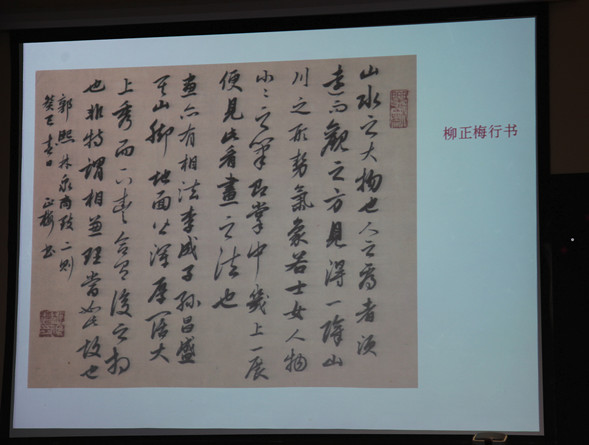 柳正梅行书
山水之大物也人之看者须
远而观之方见得一障山
川之形势氣象若士女人物
小〻之笔即掌中几上一展
便见此看畫之法也
畫亦有相法李成子孙昌盛
其山脚地面皆浑厚阔大
上秀而下丰合有後之相
也非特謂相兼理當如此故也
郭熙林泉高致二则
癸巳春日 正梅书